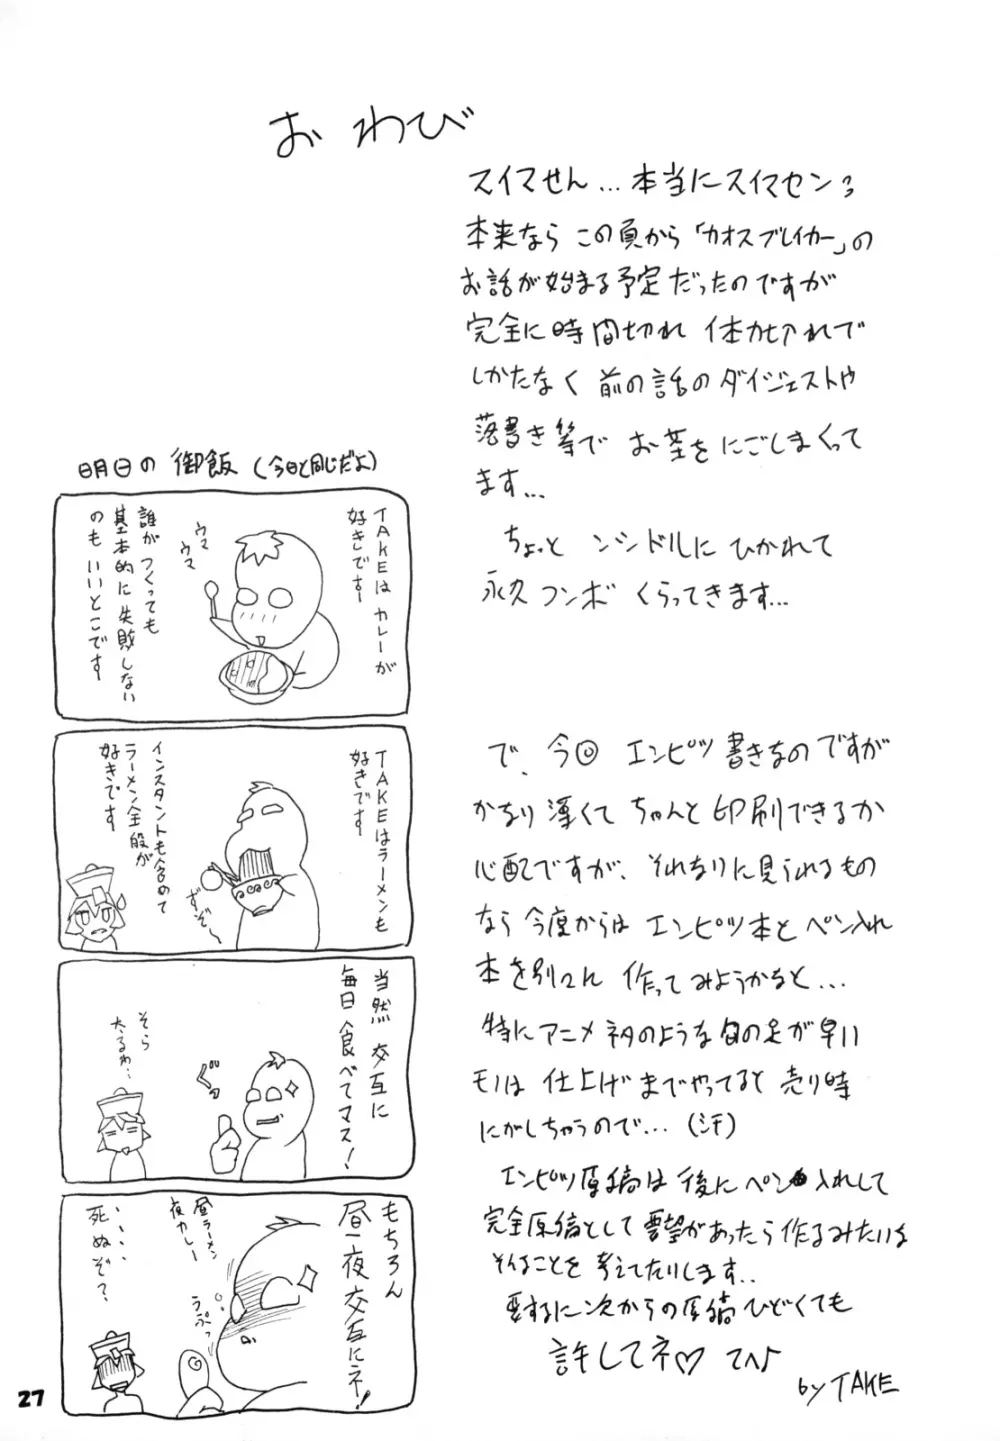 おわび
スイマせん...本当にスイマセン
本来なら この頁から「カオスブレイカー」の
お話が始まる予定だったのですが
完全に時間切れ 体力切れで
しかたなく 前の話のダイジェストや
落書き等で お茶をにごしまくって
ます...
ちょっと ンシドルに ひかれて
永久コンボ くらってきます...
で、今回 エンピツ書きなのですが
かなり薄くて ちゃんと印刷できるか
心配ですが、それなりに見られるもの
なら今度からは エンピツ本とペン入れ
本を別々に 作ってみようかなと...
特にアニメネタのような旬の足が早い
モノは 仕上げまでやってると 売り時
にがしちゃうので...(汗)
エンピツ原稿は後にペン入れして
完全原稿として要望があったら作るみたいな
そんなことを 考えてたりします..
要するに次からの原稿ひどくても
許してネ♡ てへ♪
by TAKE
明日の御飯(今日と同じだよ)
TAKEはカレーが
好きです
ウマ
ウマ
誰がつくっても
基本的に失敗しない
のもいいとこです
TAKEはラーメンも
好きです
ずぞぞ〜
インスタントも含めて
ラーメン全般が
好きです
当然 交互に
毎日食べてマス!
ぐっ
そら
太るわ...
もちろん
昼夜交互にネ!
昼ラーメン
夜カレー
うぷっ
....
死ぬぞ?
27